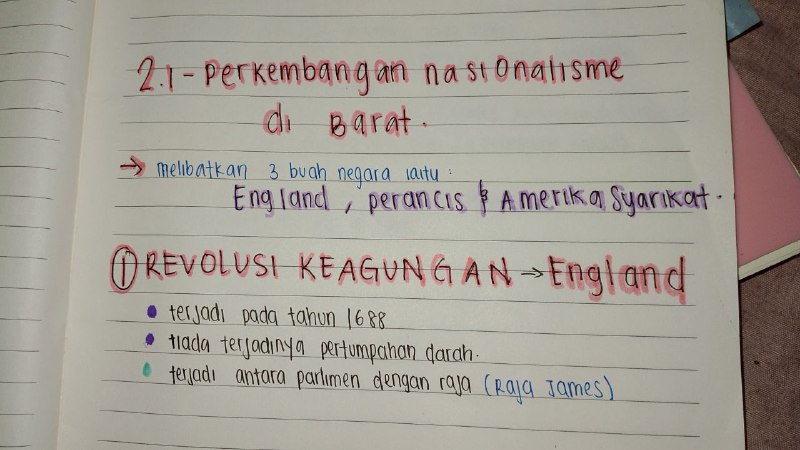 2.1 - Perkembangan nasionalisme
di Barat.
→ melibatkan 3 buah negara iaitu :
England, perancis & Amerika Syarikat.
① REVOLUSI KEAGUNGAN → England
• terjadi pada tahun 1688
• tiada terjadinya pertumpahan darah.
• terjadi antara parlimen dengan raja (Raja James)